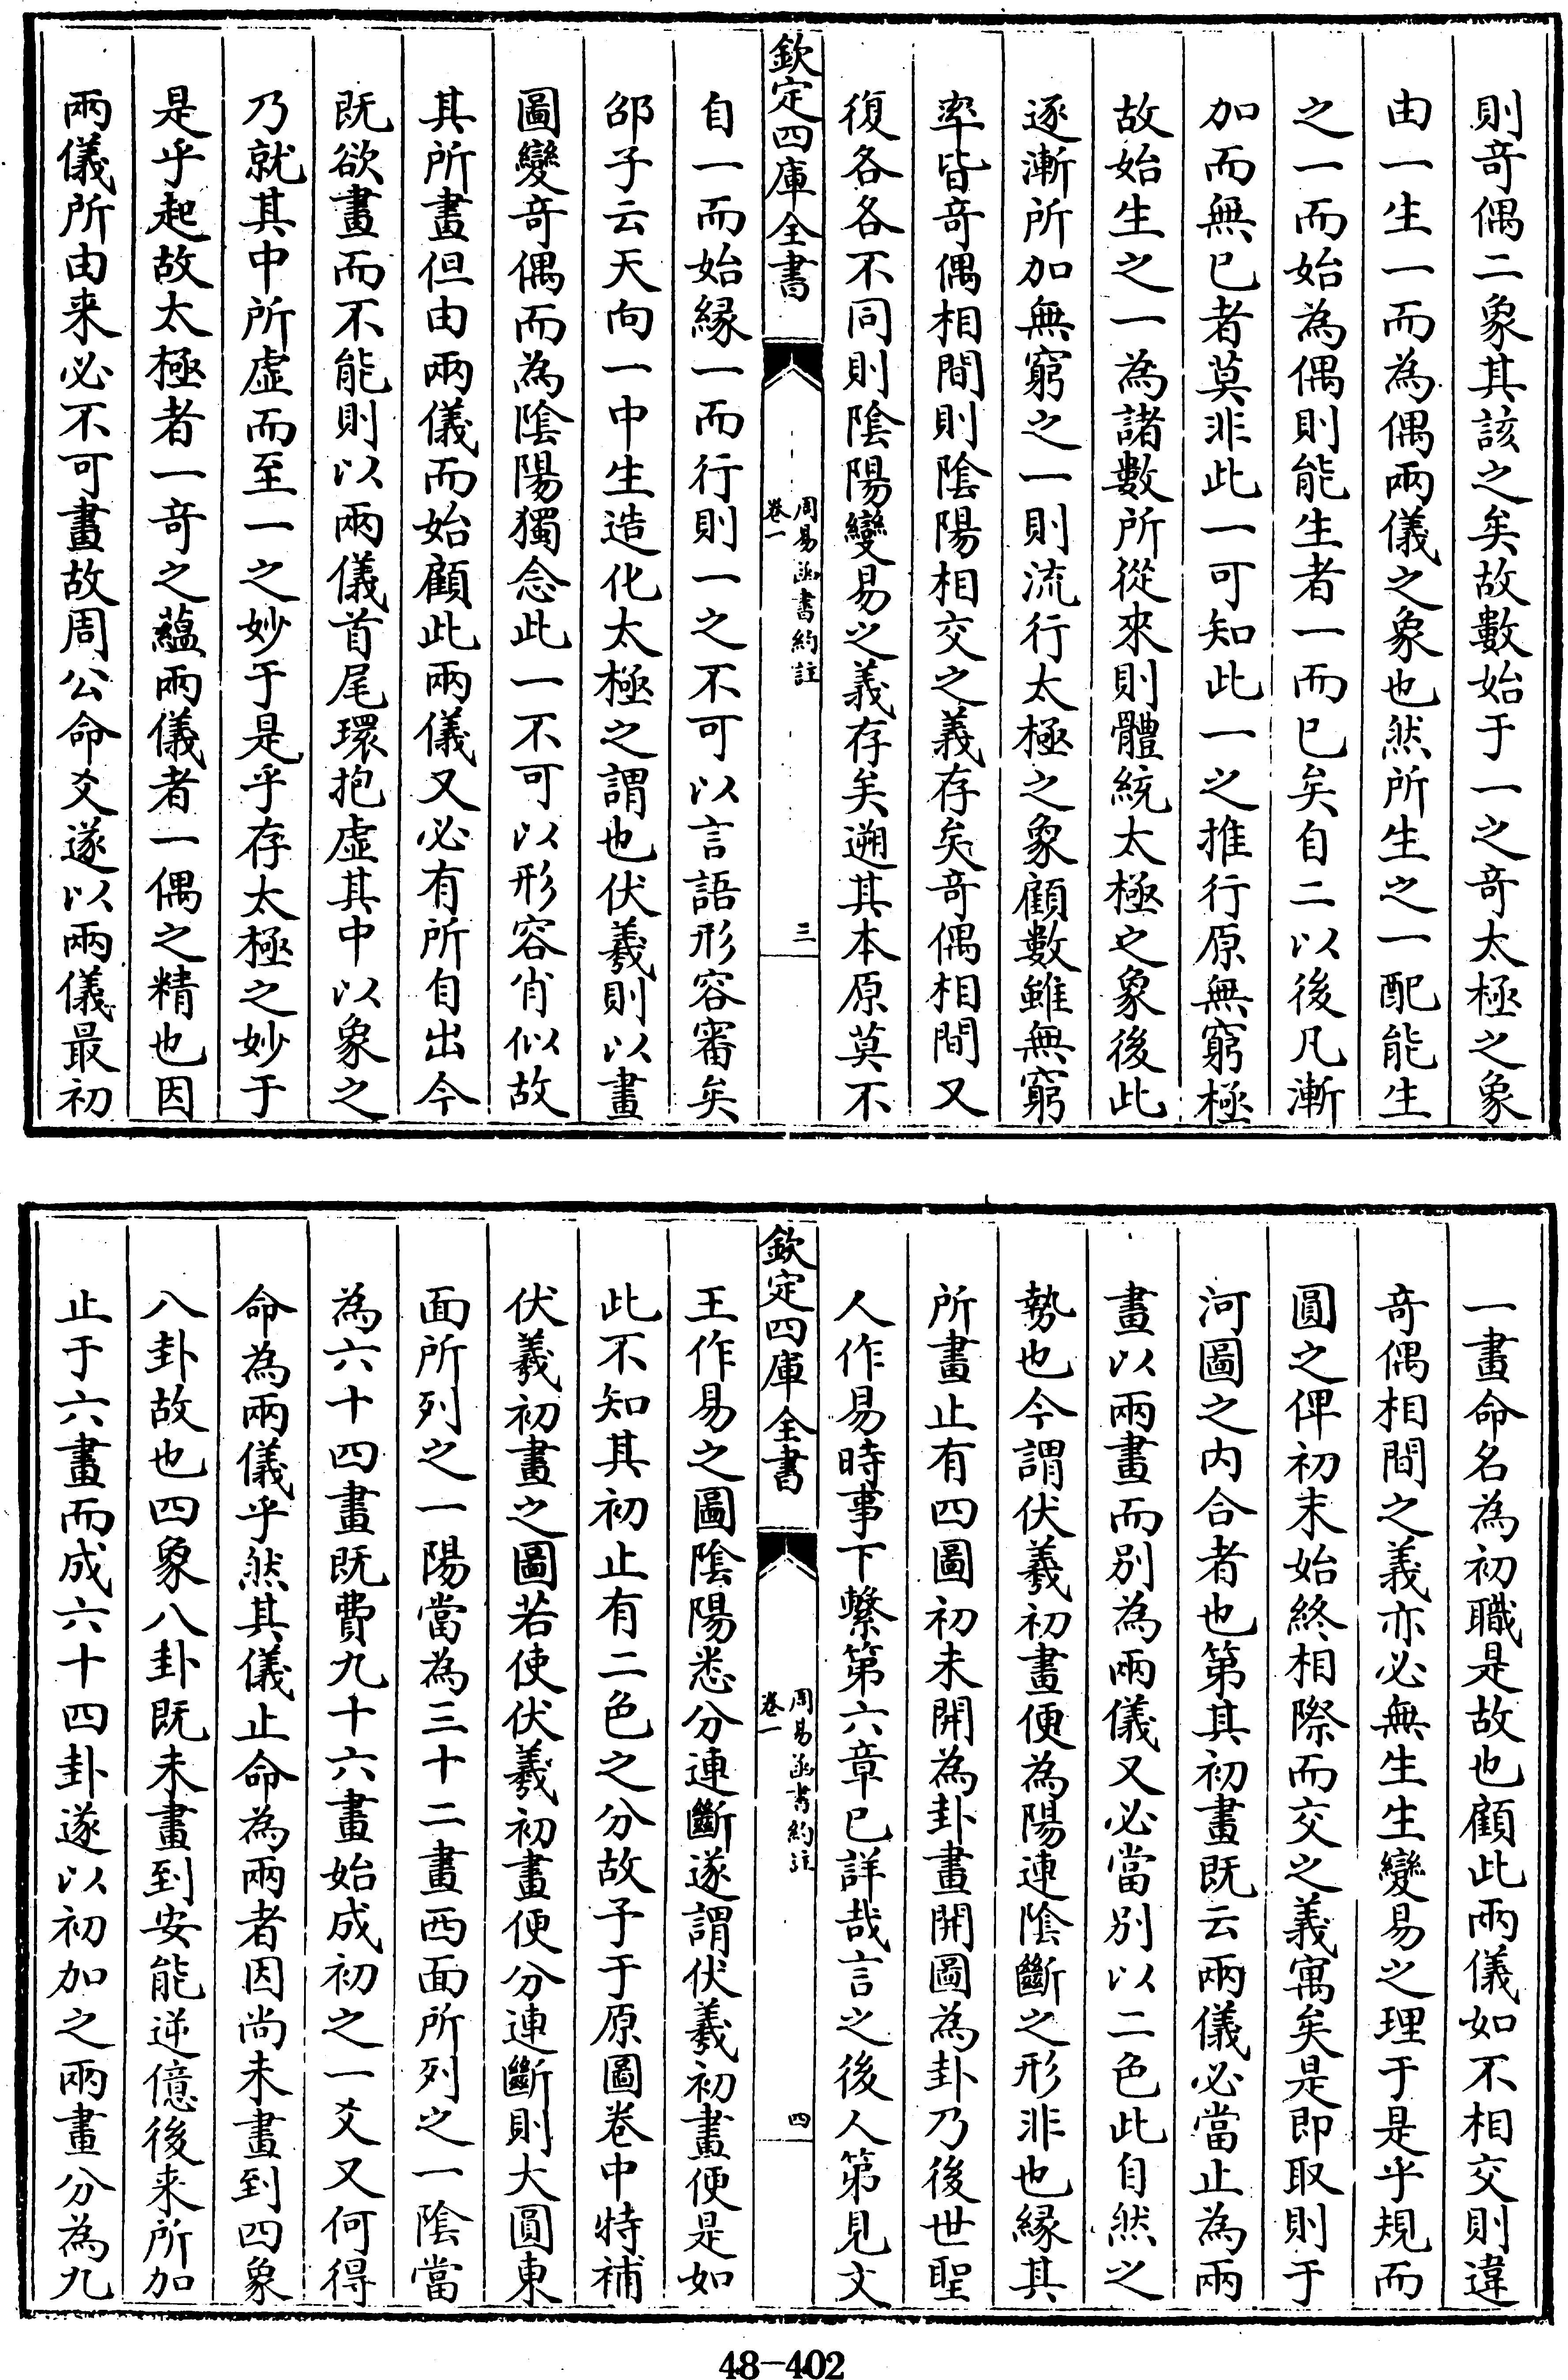 則竒偶二象其該之矣故數始于一之竒太極之象
由一生一而為偶兩儀之象也然所生之一配能生
之一而始為偶則能生者一而已矣自二以後凡漸
加而無已者莫非此一可知此一之推行原無窮極
故始生之一為諸數所從來則體統太極之象後此
逐漸所加無窮之一則流行太極之象顧數雖無窮
率皆竒偶相間則陰陽相交之義存矣竒偶相間又
復各各不同則陰陽變易之義存矣遡其本原莫不
欽定四庫全書
周易函書約註
卷一
三
自一而始緣一而行則一之不可以言語形容審矣
邵子云天向一中生造化太極之謂也伏羲則以畫
圖變竒偶而為陰陽獨念此一不可以形容肖似故
其所畫但由兩儀而始顧此兩儀又必有所自出今
既欲畫而不能則以兩儀首尾環抱虛其中以象之
乃就其中所虛而至一之妙于是乎存太極之妙于
是乎起故太極者一竒之蘊兩儀者一偶之精也因
兩儀所由来必不可畫故周公命爻遂以兩儀最初
一畫命名為初職是故也顧此兩儀如不相交則違
竒偶相間之義亦必無生生變易之理于是乎規而
圓之俾初末始終相際而交之義寓矣是即取則于
河圖之内合者也第其初畫既云兩儀必當止為兩
畫以兩畫而别為兩儀又必當别以二色此自然之
勢也今謂伏羲初畫便為陽連陰斷之形非也緣其
所畫止有四圖初未開為卦畫開圖為卦乃後世聖
人作易時事下繫第六章已詳哉言之後人第見文
欽定四庫全書
周易函書約註
卷一
四
王作易之圖陰陽悉分連斷遂謂伏羲初畫便是如
此不知其初止有二色之分故予于原圖卷中特補
伏羲初畫之圖若使伏羲初畫便分連斷則大圓東
面所列之一陽當為三十二畫西面所列之一陰當
為六十四畫既費九十六畫始成初之一爻又何得
命為兩儀乎然其儀止命為兩者因尚未畫到四象
八卦故也四象八卦既未畫到安能逆億後来所加
止于六畫而成六十四卦遂以初加之兩畫分為九
48-402